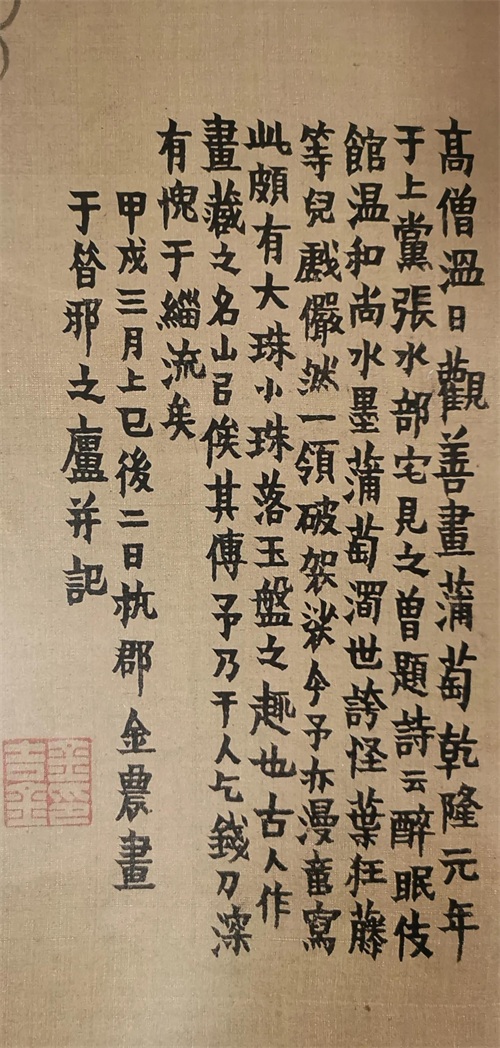 高僧溫日觀善畫蒲萄乾隆元年
于上黨張水部宅見之曾題詩云醉眠伎
館温和尚水墨蒲萄濁世誇怪葉狂藤
等兒戲儼然一領破袈裟今予亦漫畫寫
此頗有大珠小珠落玉盤之趣也古人作
畫藏之名山㠯俟其傳予乃干人乞錢刀深
有愧于緇流矣
甲戌三月上巳後二日杭郡金農畫
于昝耶之廬并記